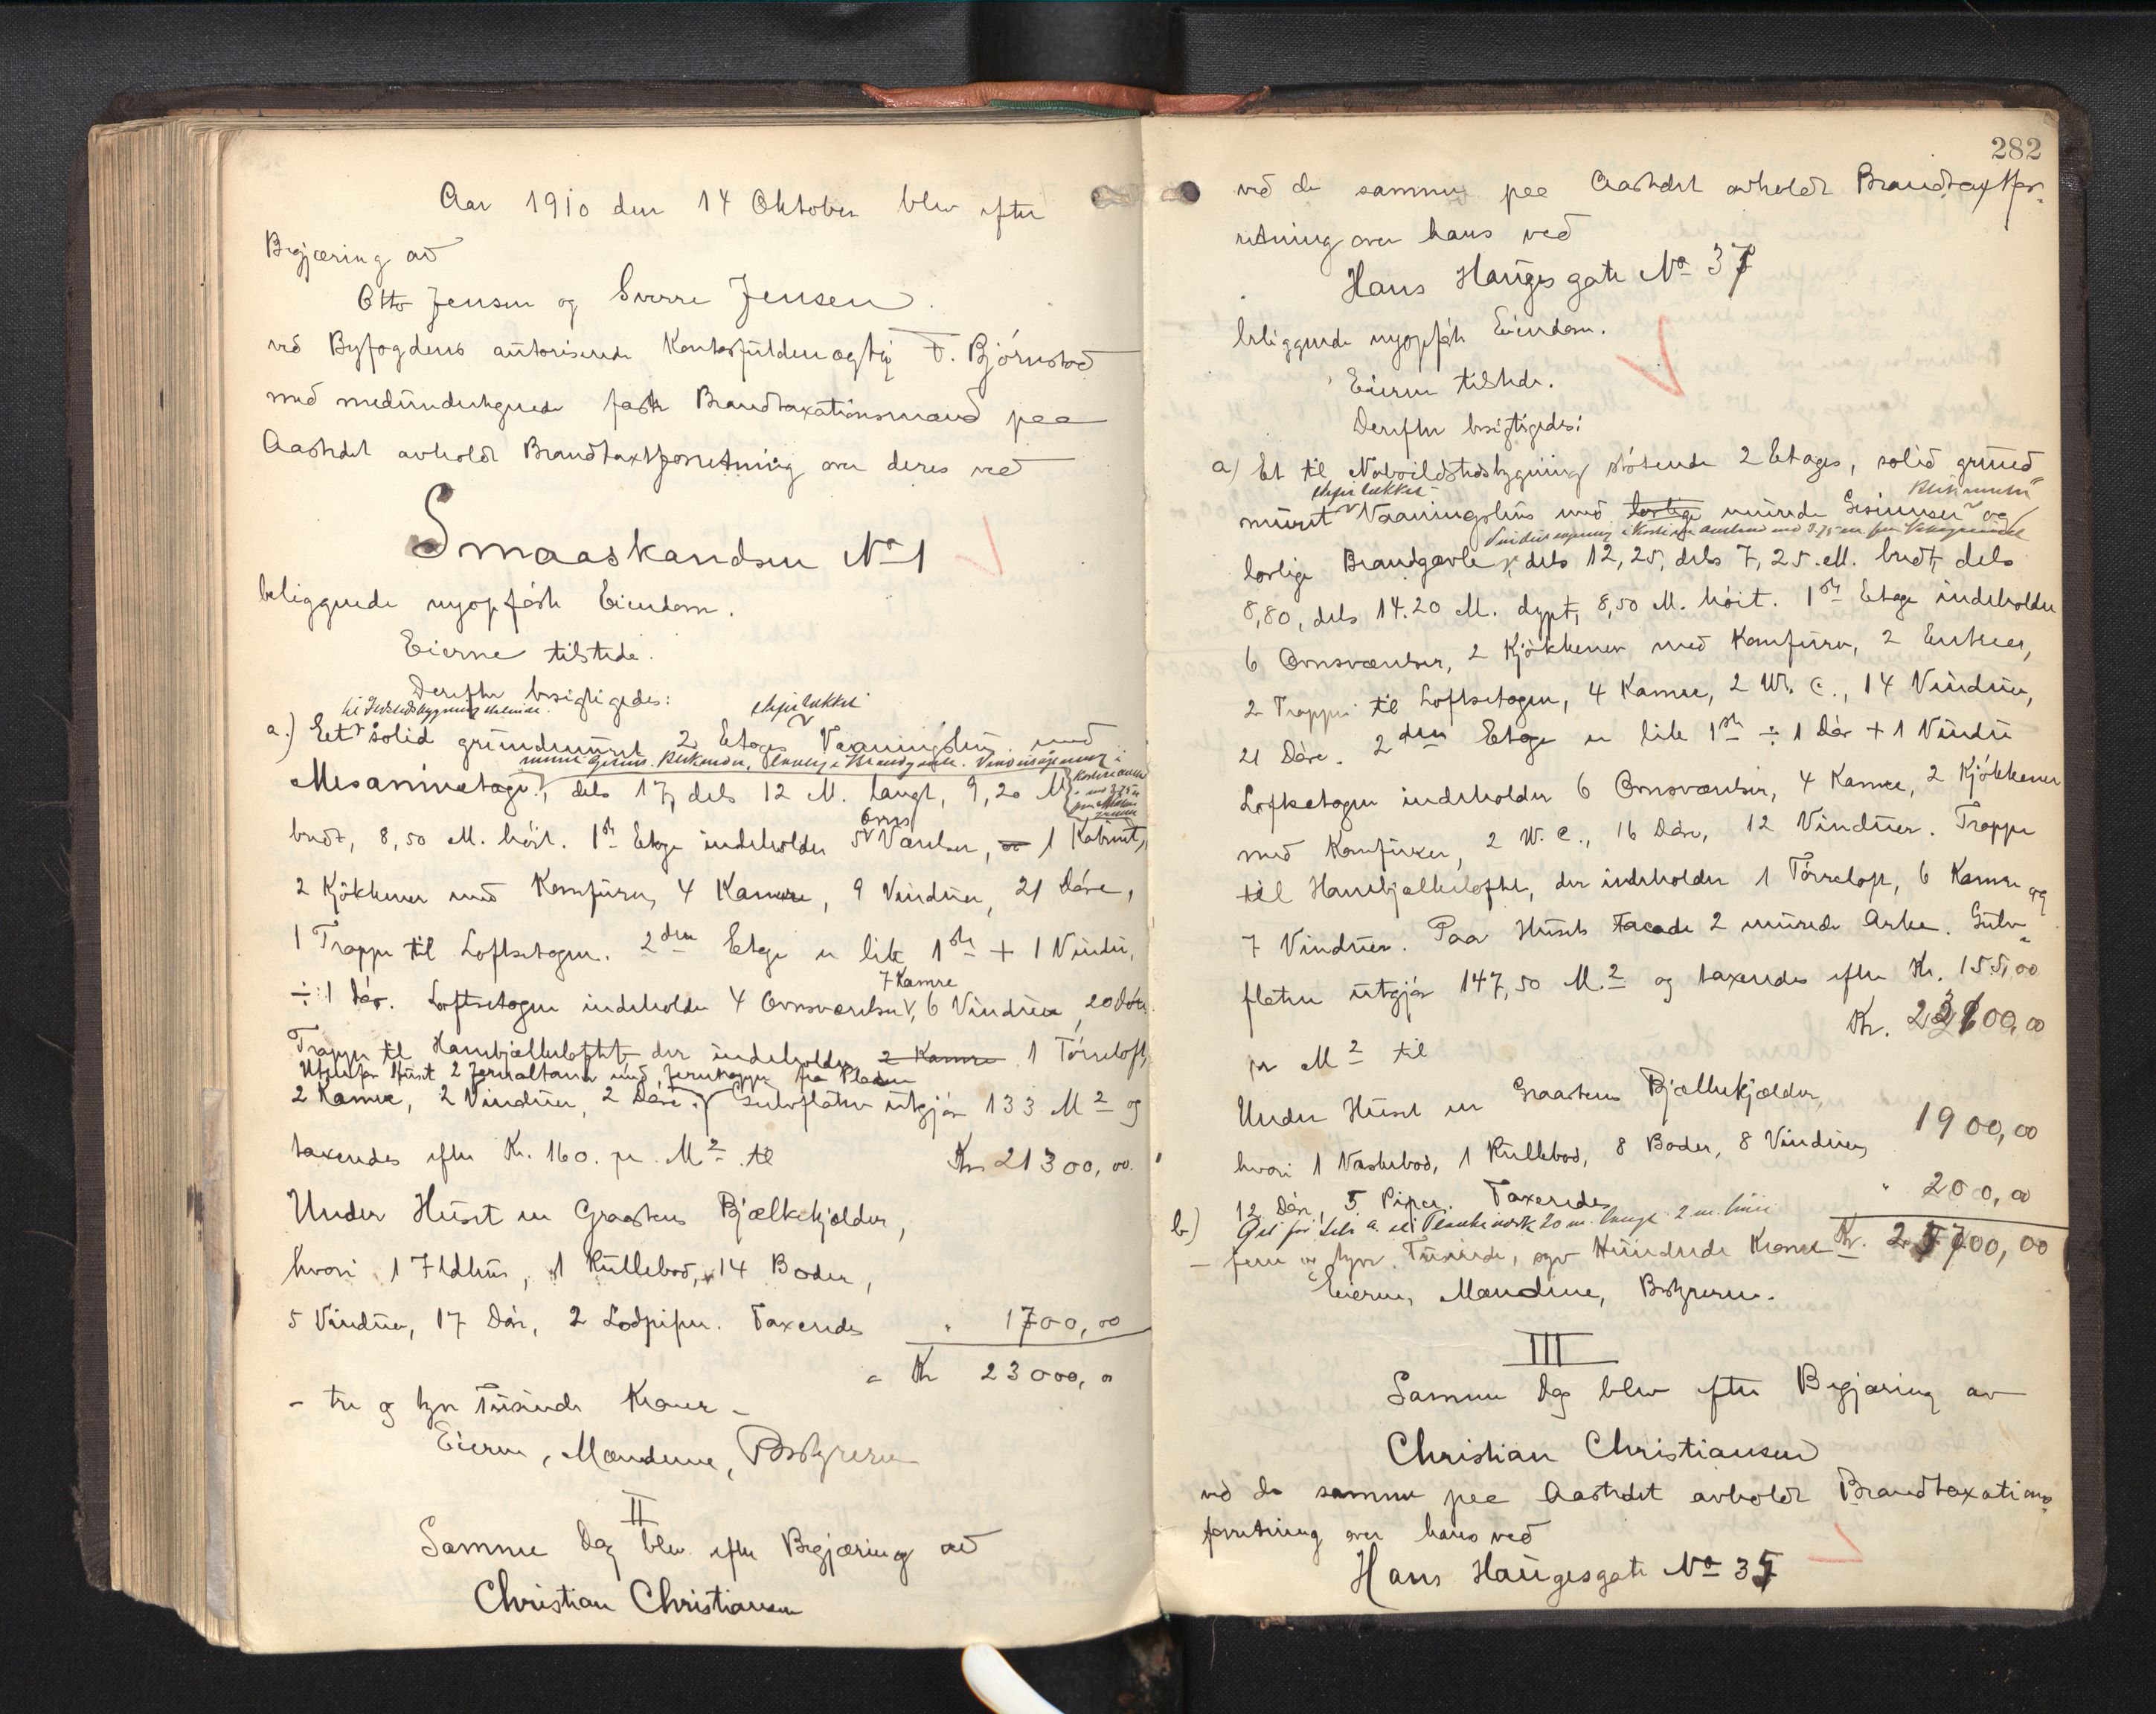 Aar 1910 den 14 Oktober blev efter
Begjæring av
Otto Jensen og Sverre Jensen.
ved Byfogdens autoriserede Kontorfuldmægtig F. Björnstad
med medundertegnede faste Brandtaxationsmænd paa
Aastedet avholdt Brandtaxtforretning over deres ved
Smaaskandsen No 1
beliggende nyopførte Eiendom.
Eierne tilstede.
Derefter besigtigedes:
a.) Et solid grundmuret 2 Etages Vaaningshus med
Mesaninetage, dels 17, dels 12 M. langt, 9,20 M
bredt, 8,50 M. höit. 1ste Etage indeholder 5 Ovns Værelser, 1 Kabinet,
2 Kjökkener med Komfurer, 4 Kamre, 9 Vinduer, 21 Döre,
1 Trappe til Loftsetagen. 2den Etage er lik 1ste + 1 Vindu,
÷ 1 Dör. Loftsetagen indeholder 4 Ovnsværelser, 7 Kamre, 6 Vinduer, 20 Döre.
Trappe til Hanebjælkeloftet, der indeholder 2 Kamre 1 Törreloft,
Utenfor Huset 2 Jernaltaner med Jerntrappe fra Pladsen
2 Kamre, 2 Vinduer, 2 Döre. Gulvflaten utgjör 133 M2 og
taxeredes efter Kr. 160. pr. M2 til Kr 21300,00.
Under Huset er Graastens Bjælkekjelder,
hvori 1 Ildhus, 1 Kullebod, 14 Boder,
5 Vinduer, 17 Döre, 2 Lodpiper. Taxeredes " 1700,00
= Kr 23000,00
- tre og tyve Tusinde Kroner -
Eierne, Mændene, Bestyreren
II
Samme Dag blev efter Begjæring av
Christian Christiansen
282
ved de samme paa Aastedet avholdt Brandtaxtfor-
retning over hans ved
Hans Hauges gate No 37
beliggende nyopförte Eiendom.
Eieren tilstede.
Derefter besigtigedes:
a) Et til Naboildstedsbygning stötende 2 Etages, solid grund-
muret Vaaningshus med lovlige murede Gesimser og
lovlige Brandgavle, dels 12,25, dels 7,25 M. bredt, dels
8,80, dels 14.20 M. dypt, 8,50 M. höit. 1ste Etage indeholder
6 Ovnsværelser, 2 Kjökkener med Komfurer, 2 Entreer,
2 Trapper til Loftsetagen, 4 Kamre, 2 W. C., 14 Vinduer,
21 Döre. 2den Etage er lik 1ste ÷ 1 Dör + 1 Vindu
Loftsetagen indeholder 6 Ovnsværelser, 4 Kamre, 2 Kjökkener
med Komfurer, 2 W. C., 16 Döre, 12 Vinduer. Trappe
til Hanebjælkeloftet, der indeholder 1 Törreloft, 6 Kamre og
7 Vinduer. Paa Husets Facade 2 murede Arker. Gulv-
flaten utgjör 147,50 M.2 og taxeredes efter Kr. 155,00
pr M2 til Kr. 23100,00
Under Huset er Graastens Bjælkekjælder,
hvori 1 Vaskebod, 1 Kullebod, 8 Boder, 8 Vinduer, 1900,00
12 Döre, 5 Piper. Taxeredes
b) Plankeværk 20 m. langt 2 m. höit " 200,00
- fem og tyve Tusinde, syv Hundrede Kroner Kr. 25700,00
Eieren, Mændene, Bestyreren.
III
Samme Dag blev efter Begjæring av
Christian Christiansen
ved de samme paa Aastedet avholdt Brandtaxations-
forretning over hans ved
Hans Haugesgate No 35